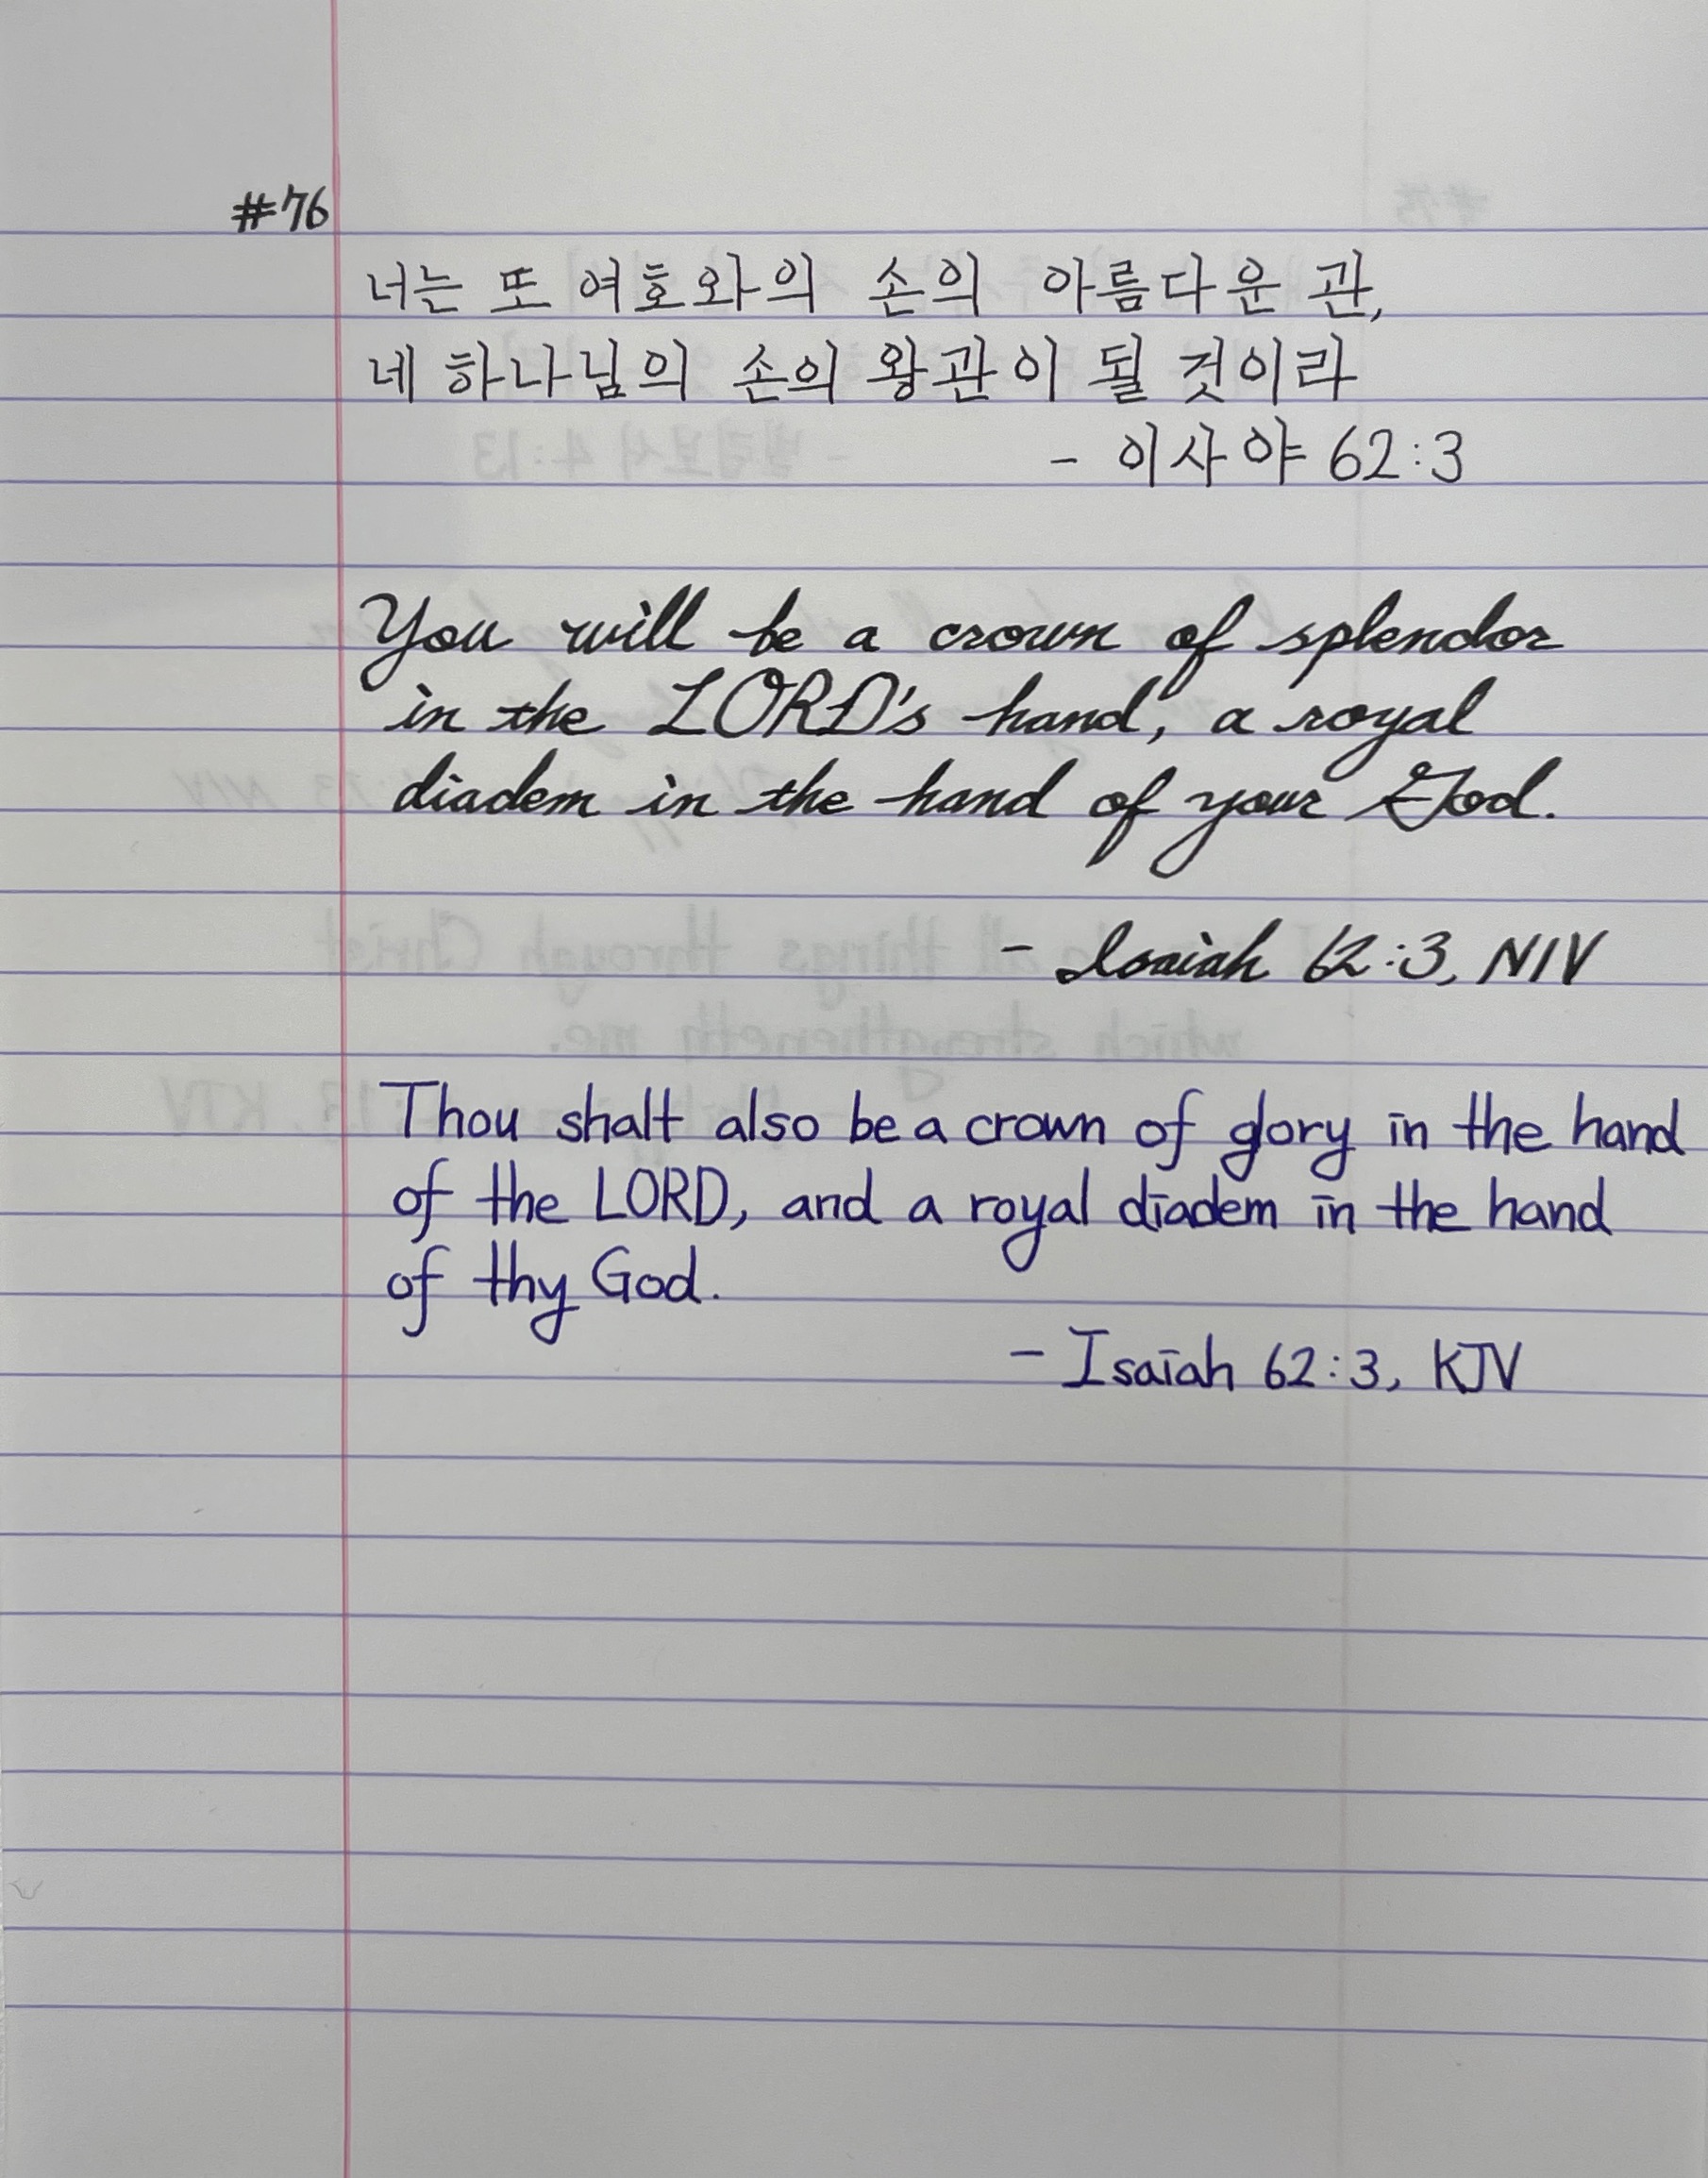 #76
너는 또 여호와의 손의 아름다운 관,
네 하나님의 손의 왕관이 될 것이라
- 이사야 62:3
You will be a crown of splendor
in the LORD's hand, a royal
diadem in the hand of your God.
- Isaiah 62:3, NIV
Thou shalt also be a crown of glory in the hand
of the LORD, and a royal diadem in the hand
of thy God.
- Isaiah 62:3, KJV